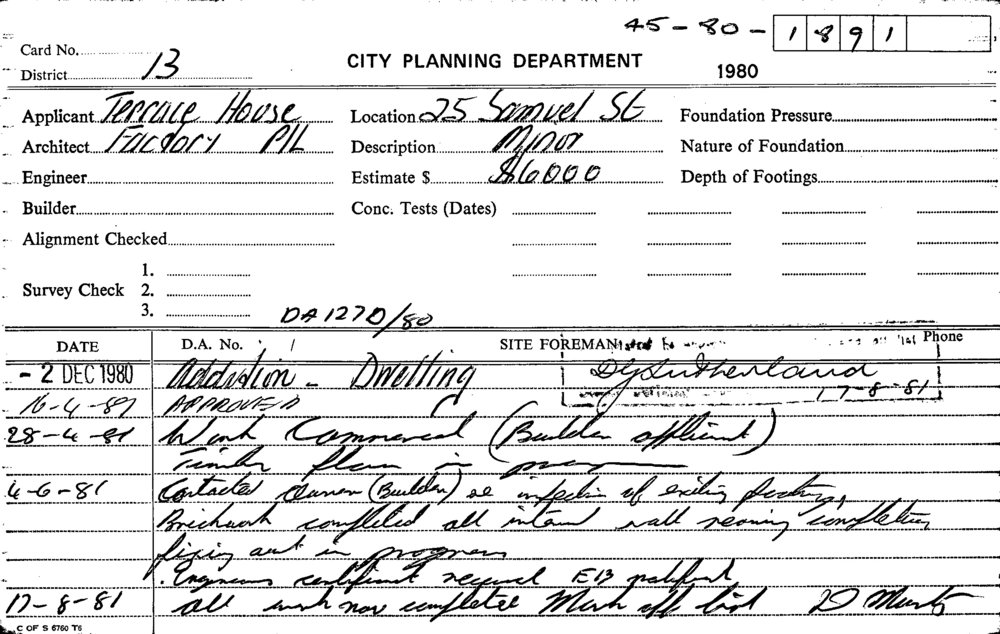 45-80-1891
Card No.
District 13
CITY PLANNING DEPARTMENT
1980
Applicant Terrace House
Location 25 Samuel St
Foundation Pressure
Architect Factory P/L
Description Minor
Nature of Foundation
Engineer
Estimate $ $6000
Depth of Footings
Builder
Conc. Tests (Dates)
Alignment Checked
1.
Survey Check 2.
3.
DA 1270/80
DATE D.A. No. SITE FOREMAN Phone
- 2 DEC 1980 Addition - Dwelling
DGSutherland
17-8-81
16-4-81 APPROVED
28-4-81 Work Commenced (Builder applicant)
Timber floor in
4-6-81 Contacted Owner (Builder) re inspection of existing footings,
Brickwork completed all internal wall nearing completion
fixing out in progress
Engineers certificate received E13
17-8-81 all work now completed Mark off list D
C OF S 6760 T6